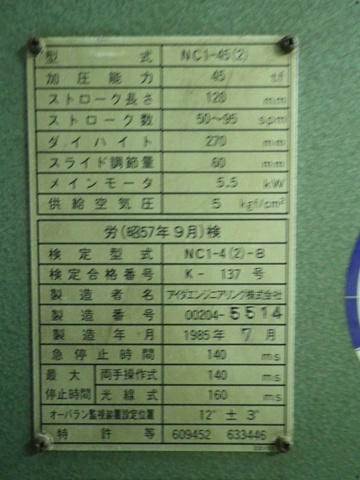 型式 NC1-45(2)
加圧能力 45 tf
ストローク長さ 120 mm
ストローク数 50~95 spm
ダイハイト 270 mm
スライド調節量 60 mm
メインモータ 5.5 kW
供給空気圧 5 kgf/cm²
労(昭57年9月)検
検定型式 NC1-4(2)-B
検定合格番号 K- 137 号
製造者名 アイダエンジニアリング株式会社
製造番号 00204-5514
製造年月 1985年 7月
急停止時間 140 ms
最大 両手操作式 140 ms
停止時間 光線式 160 ms
オーバラン監視装置設定位置 12° ± 3°
特許等 609452 633446